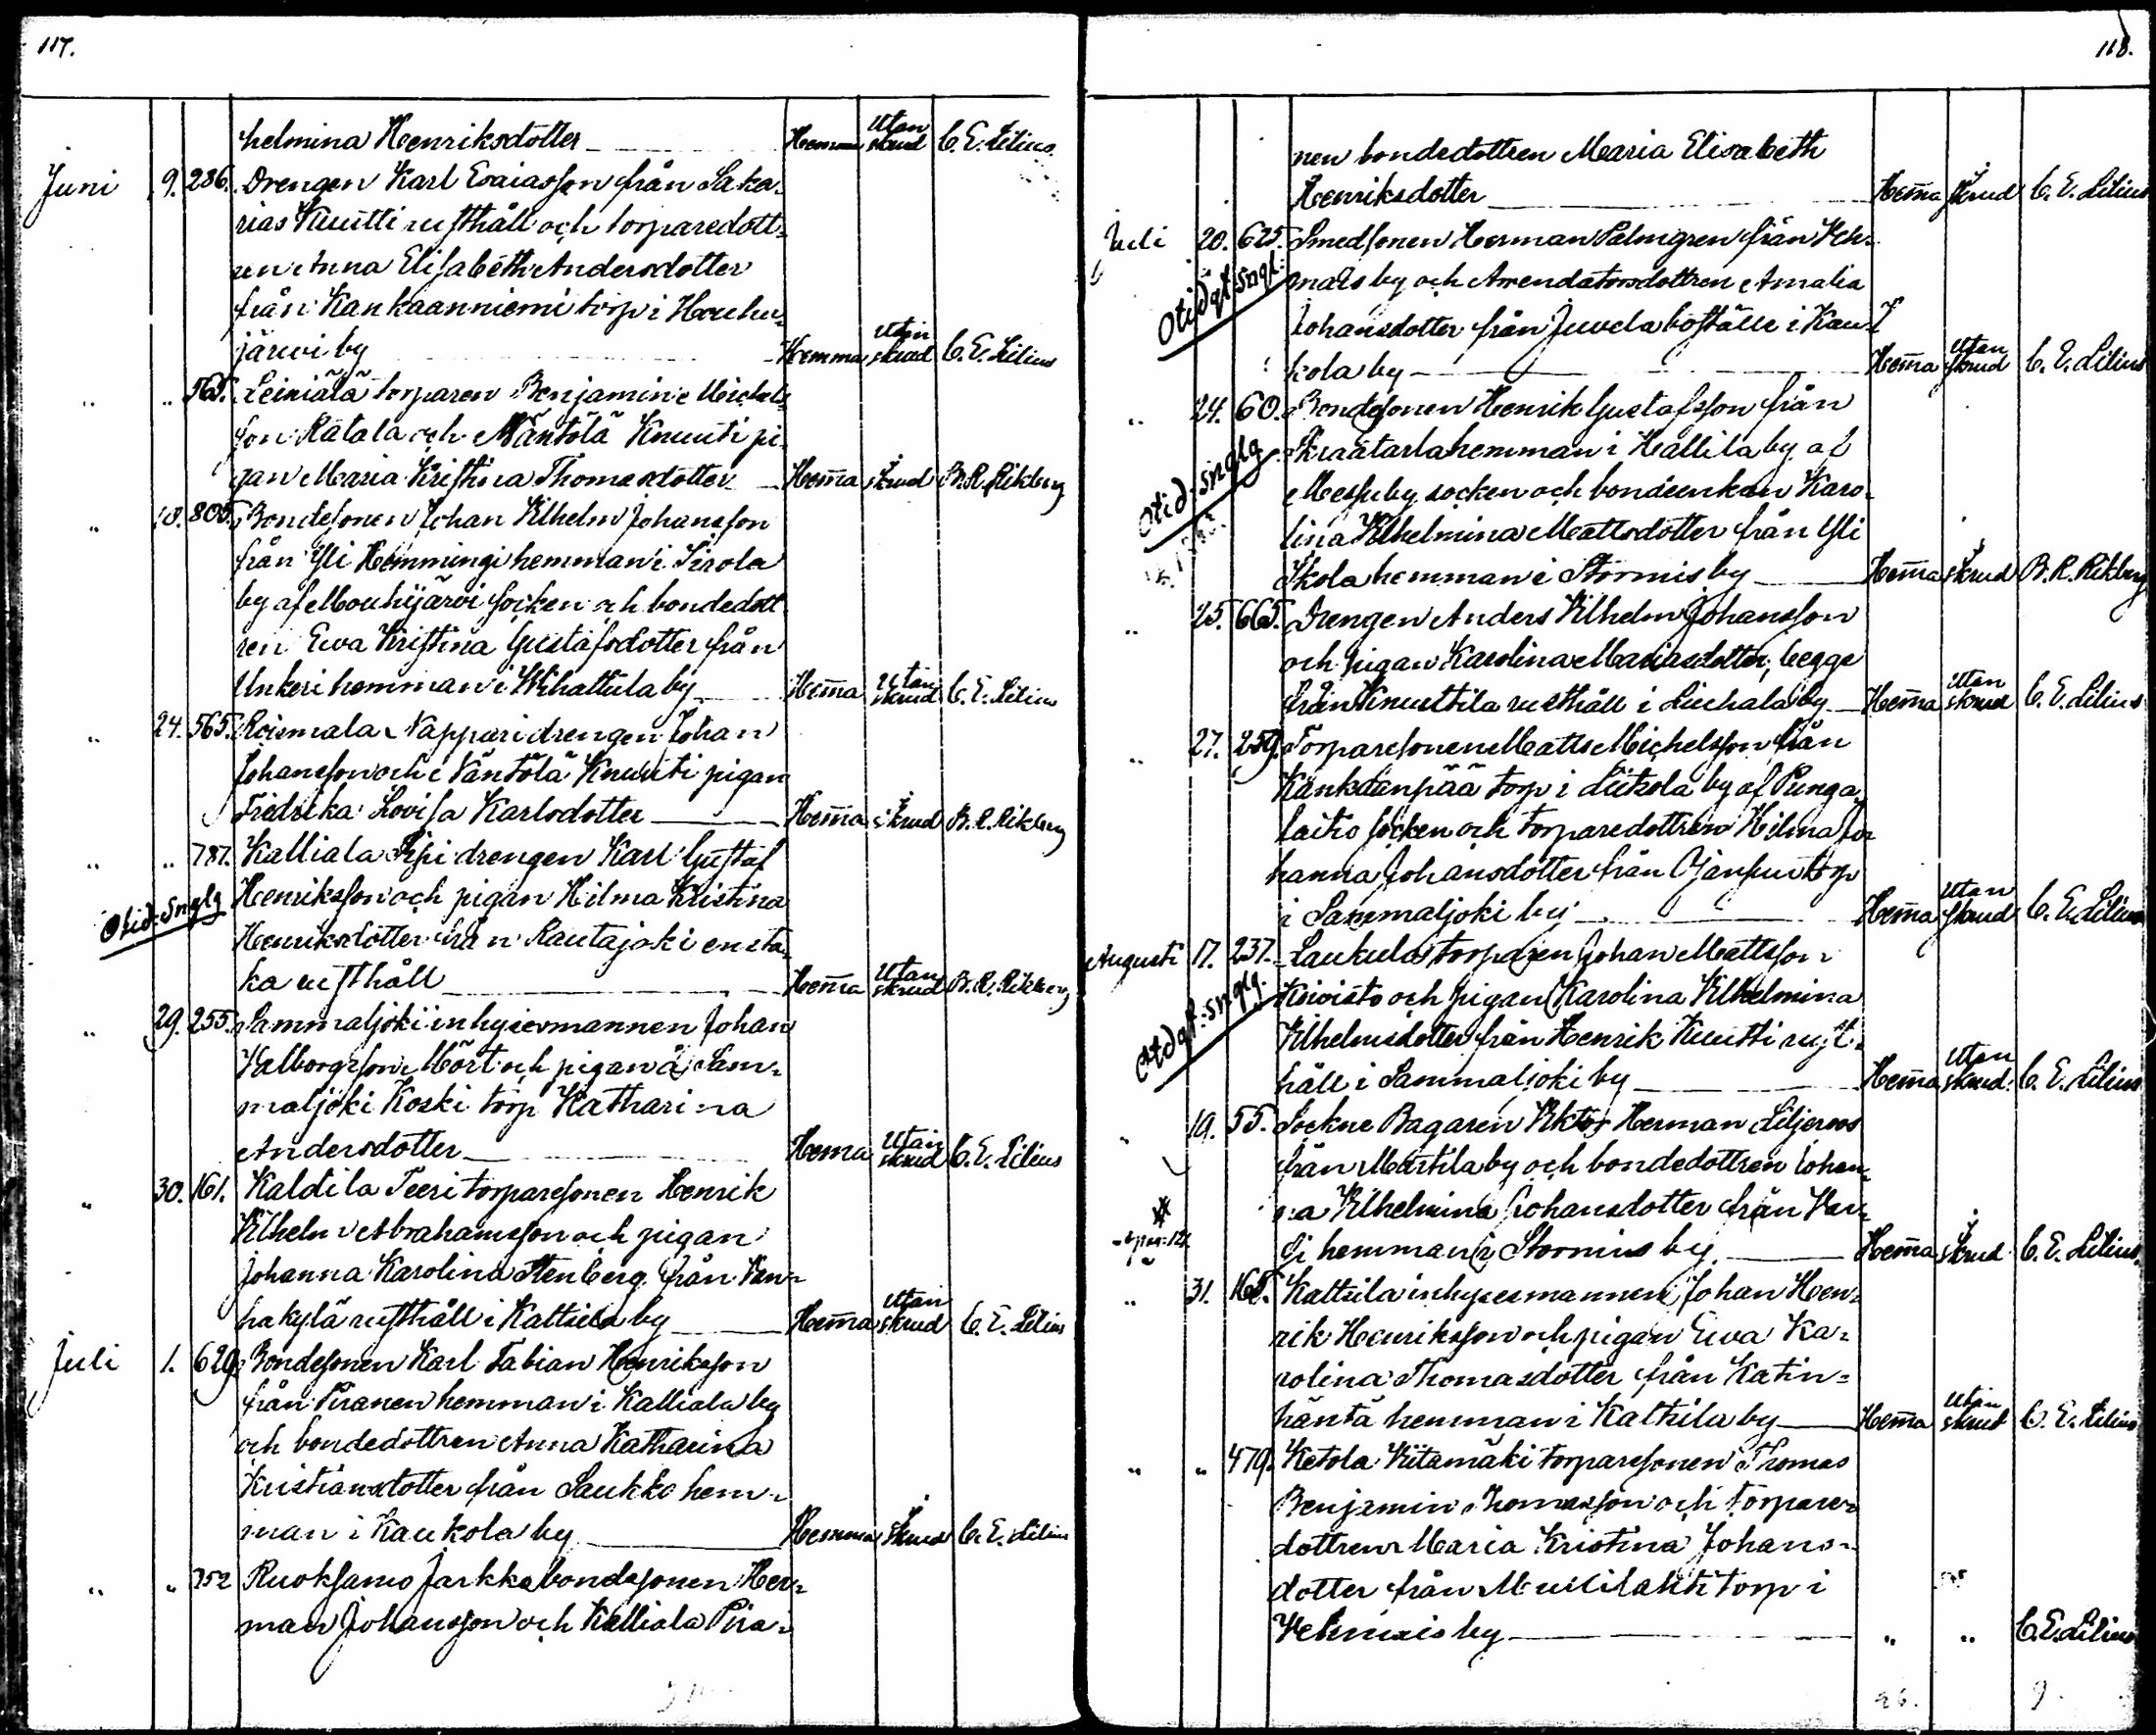 117.
helmina Henriksdotter Hemma utan skrud C. E. Lilius
Juni 9. 286. Drengen Karl Esaiasson från Saka-
rias Knutti rusthåll och torparedott-
ren Anna Elisabeth Andersdotter
från Kankaanniemi torp i Houhu-
järvi by Hemma utan skrud C. E. Lilius
" " 565. Leiniälä torparen Benjamin Michels-
son Ratala och Näntölä Knuuti pi-
gan Maria Kristina Thomasdotter Hem̄a i skrud B. R. Rikberg
" 18. 800. Bondesonen Johan Vilhelm Johansson
från Yli Hemmingi hemman i Sirola
by af Mouhijärvi socken och bondedott-
ren Eva Kristina Gustafsdotter från
Unkeri hemman i Vihattula by Hem̄a utan skrud C. E. Lilius
" 24. 565. Roismala Nappari drengen Johan
Johansson och Näntölä Knuuti pigan
Fredrika Lovisa Karlsdotter Hem̄a i skrud B. R. Rikberg
" " 787. Kalliala Sipi drengen Karl Gustaf
Otid: snglg Henriksson och pigan Hilma Kristina
Henriksdotter från Rautajoki ensta-
ka rusthåll Hem̄a utan skrud B. R. Rikberg
" 29. 255. Sammaljoki inhysesmannen Johan
Valborgsson Mört och pigan å Sam-
maljoki Koski torp Katharina
Andersdotter Hem̄a utan skrud C. E. Lilius
" 30. 161. Kaldila Teeri torparesonen Henrik
Vilhelm Abrahamsson och pigan
Johanna Karolina Stenberg från Van-
hakylä rusthåll i Kattila by Hem̄a utan skrud C. E. Lilius
Juli 1. 629. Bondesonen Karl Fabian Henriksson
från Piranen hemman i Kalliala by
och bondedottren Anna Katharina
Kristiansdotter från Saukko hem-
man i Kaukola by Hemma i skrud C. E. Lilius
" " 752 Ruoksamo Jaakkabondesonen Her-
man Johansson och Kalliala Pira-
118.
nen bondedottren Maria Elisabeth
Henriksdotter Hem̄a i skrud C. E. Lilius
Juli 20. 625. Smedsonen Herman Palmgren från Veh-
Otidgt: sngl: mais by och Arrendatorsdottren Amalia
Johansdotter från Juvela boställe i Kau-
kola by Hem̄a utan skrud C. E. Lilius
" 24. 60. Bondesonen Henrik Gustafsson från
Otid: snglg Skraatarla hemman i Hällilä by af
Messuby socken och bondeenkan Karo-
lina Vilhelmina Mattsdotter från Yli
Skola hemman i Stormis by Hem̄a i skrud B. R. Rikberg
" 25. 665. Drengen Anders Vilhelm Johansson
och pigan Karolina Mariasdotter, begge
från Knuuttila rusthåll i Liuhala by Hem̄a utan skrud C. E. Lilius
" 27. 259. Torparesonen Matts Michelsson från
Kankaanpää torp i Liitsola by af Punga-
laitio socken och torparedottren Hilma Jo-
hanna Johansdotter från Ojansuu torp
i Sammaljoki by Hem̄a utan skrud C. E. Lilius
Augusti 17. 237. Laukula torparen Johan Mattsson
Otdgt: snglg. Koivisto och pigan Karolina Vilhelmina
Vilhelmsdotter från Henrik Knutti rust-
håll i Sammaljoki by Hem̄a utan skrud C. E. Lilius
" 19. 55. Sockne Bagaren Viktor Herman Liljeroos
från Marttila by och bondedottren Johan-
na Vilhelmina Johansdotter från Var-
si hemman i Stormis by Hem̄a i skrud C. E. Lilius.
" 31. 165. Kattila inhysesmannen Johan Hen-
rik Henriksson och pigan Eva Ka-
rolina Thomasdotter från Katin-
häntä hemman i Kattila by Hem̄a utan skrud C. E. Lilius
" " 479. Ketola Kiitamäki torparesonen Thomas
Benjamin Thomasson och torpare-
dottren Maria Kristina Johans-
dotter från Mustilahti torp i
Vehmais by " " C. E. Lilius